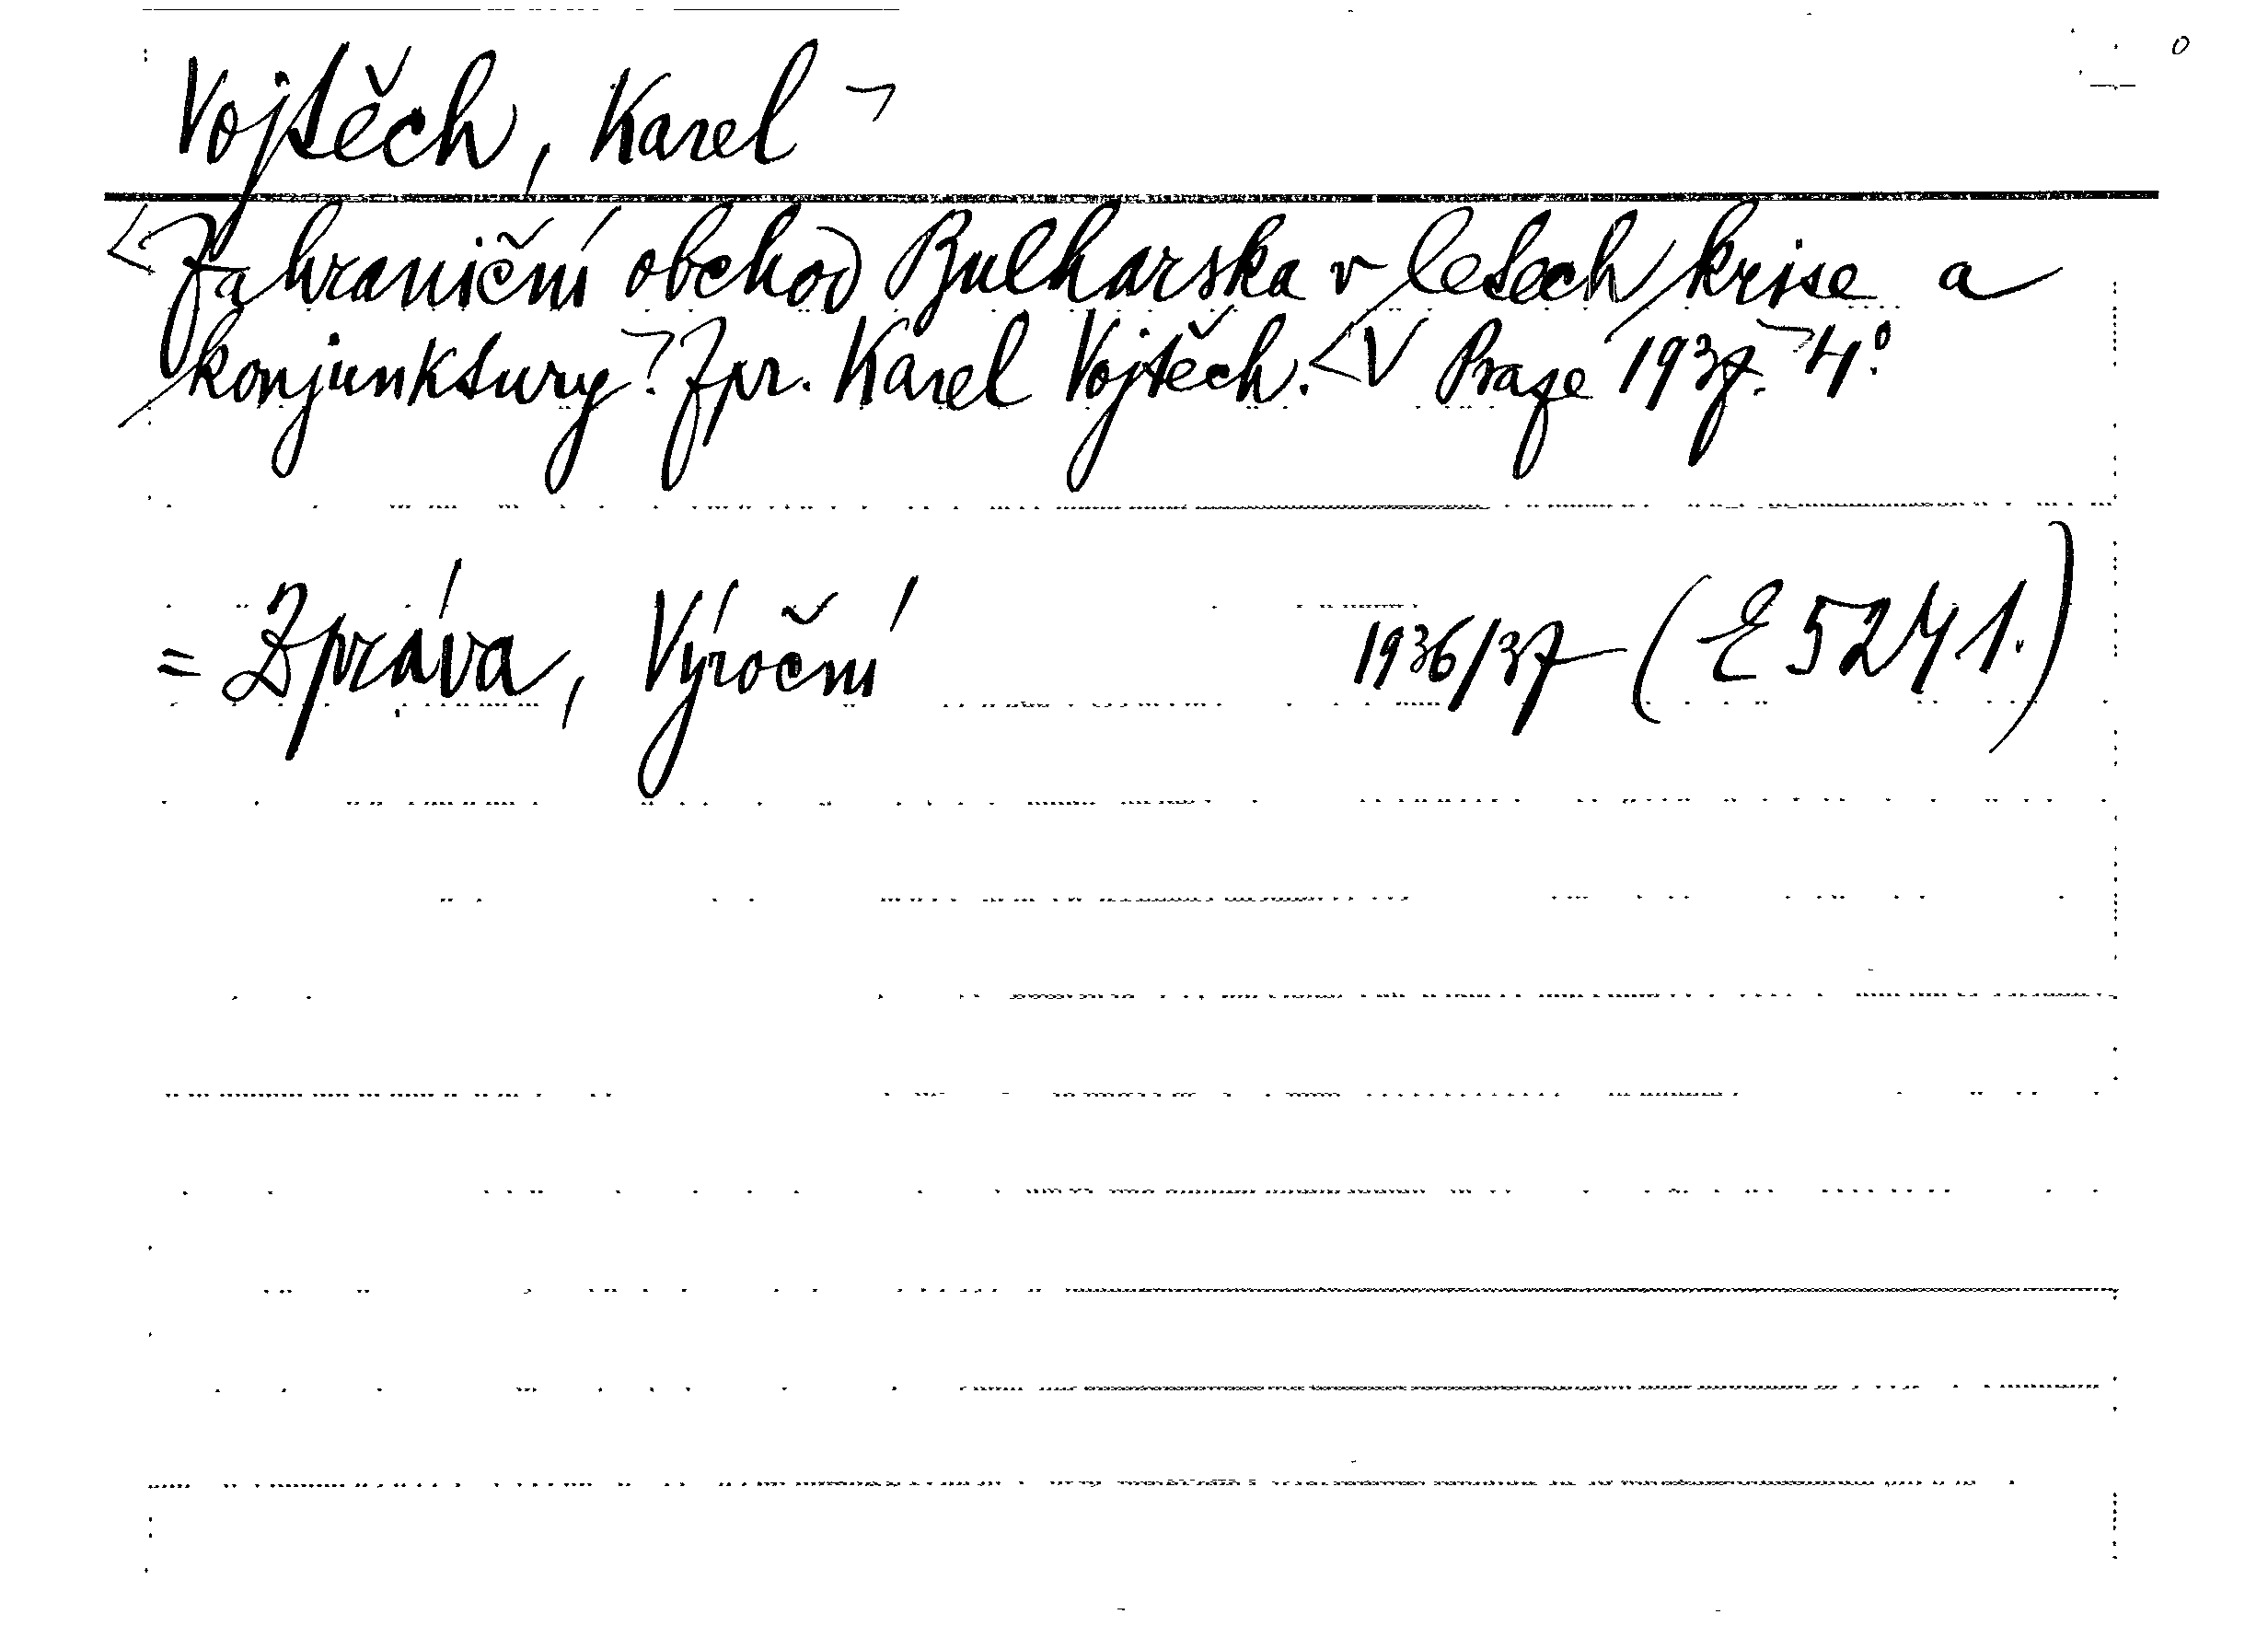 Vojtěch, Karel ¬
<Zahraniční obchod Bulharska v letech krise a
konjunktury.¬ Zpr. Karel Vojtěch. <V Praze 1937.¬ 4°.
= Zpráva, Výroční 1936/37 (E 5241.)